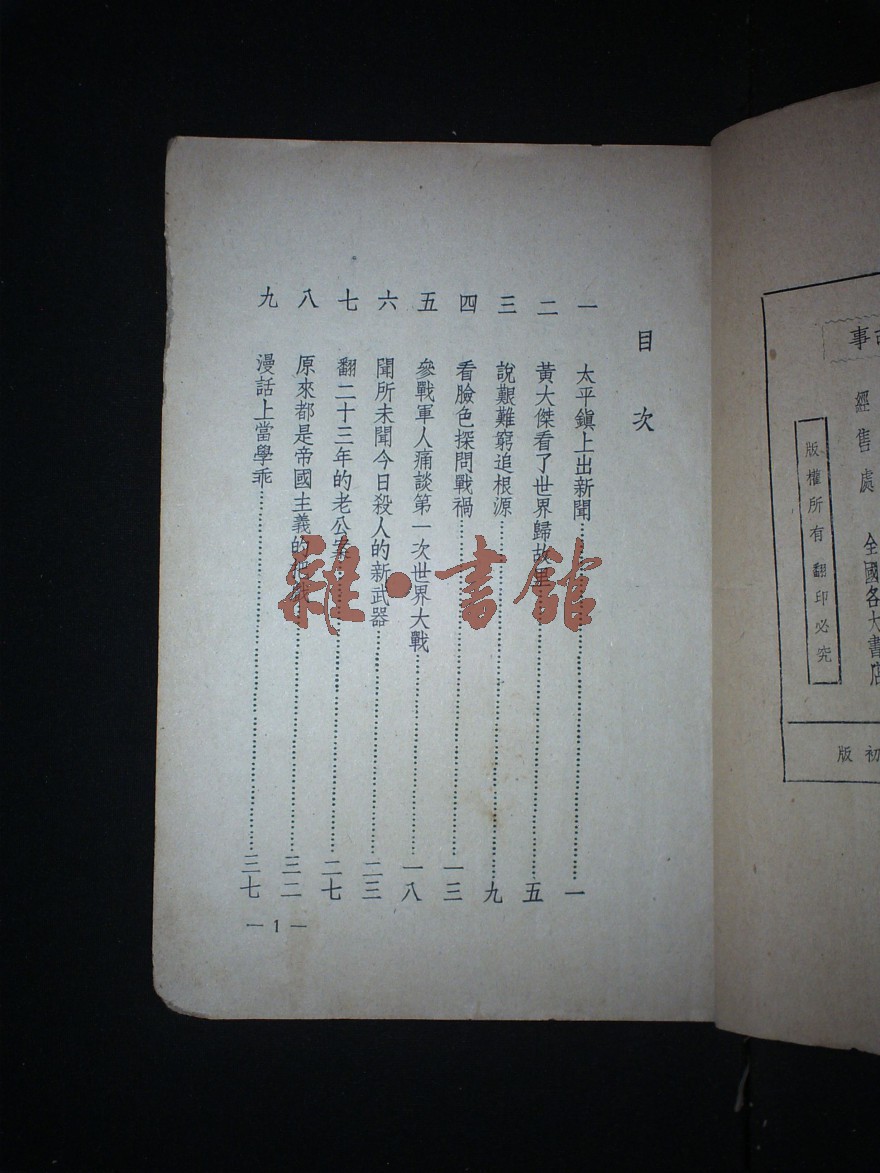 事
經售處 全國各大書店
版權所有 翻印必究
初版
目次
一 太平鎮上出新聞……一
二 黃大傑看了世界歸故里……五
三 說艱難窮追根源……九
四 看臉色探問戰禍……一三
五 參戰軍人痛談第一次世界大戰……一八
六 聞所未聞今日殺人的新武器……二三
七 翻二十三年的老公案……二七
八 原來都是帝國主義的……三二
九 漫話上當學乖……三七
—1—
雜·書館